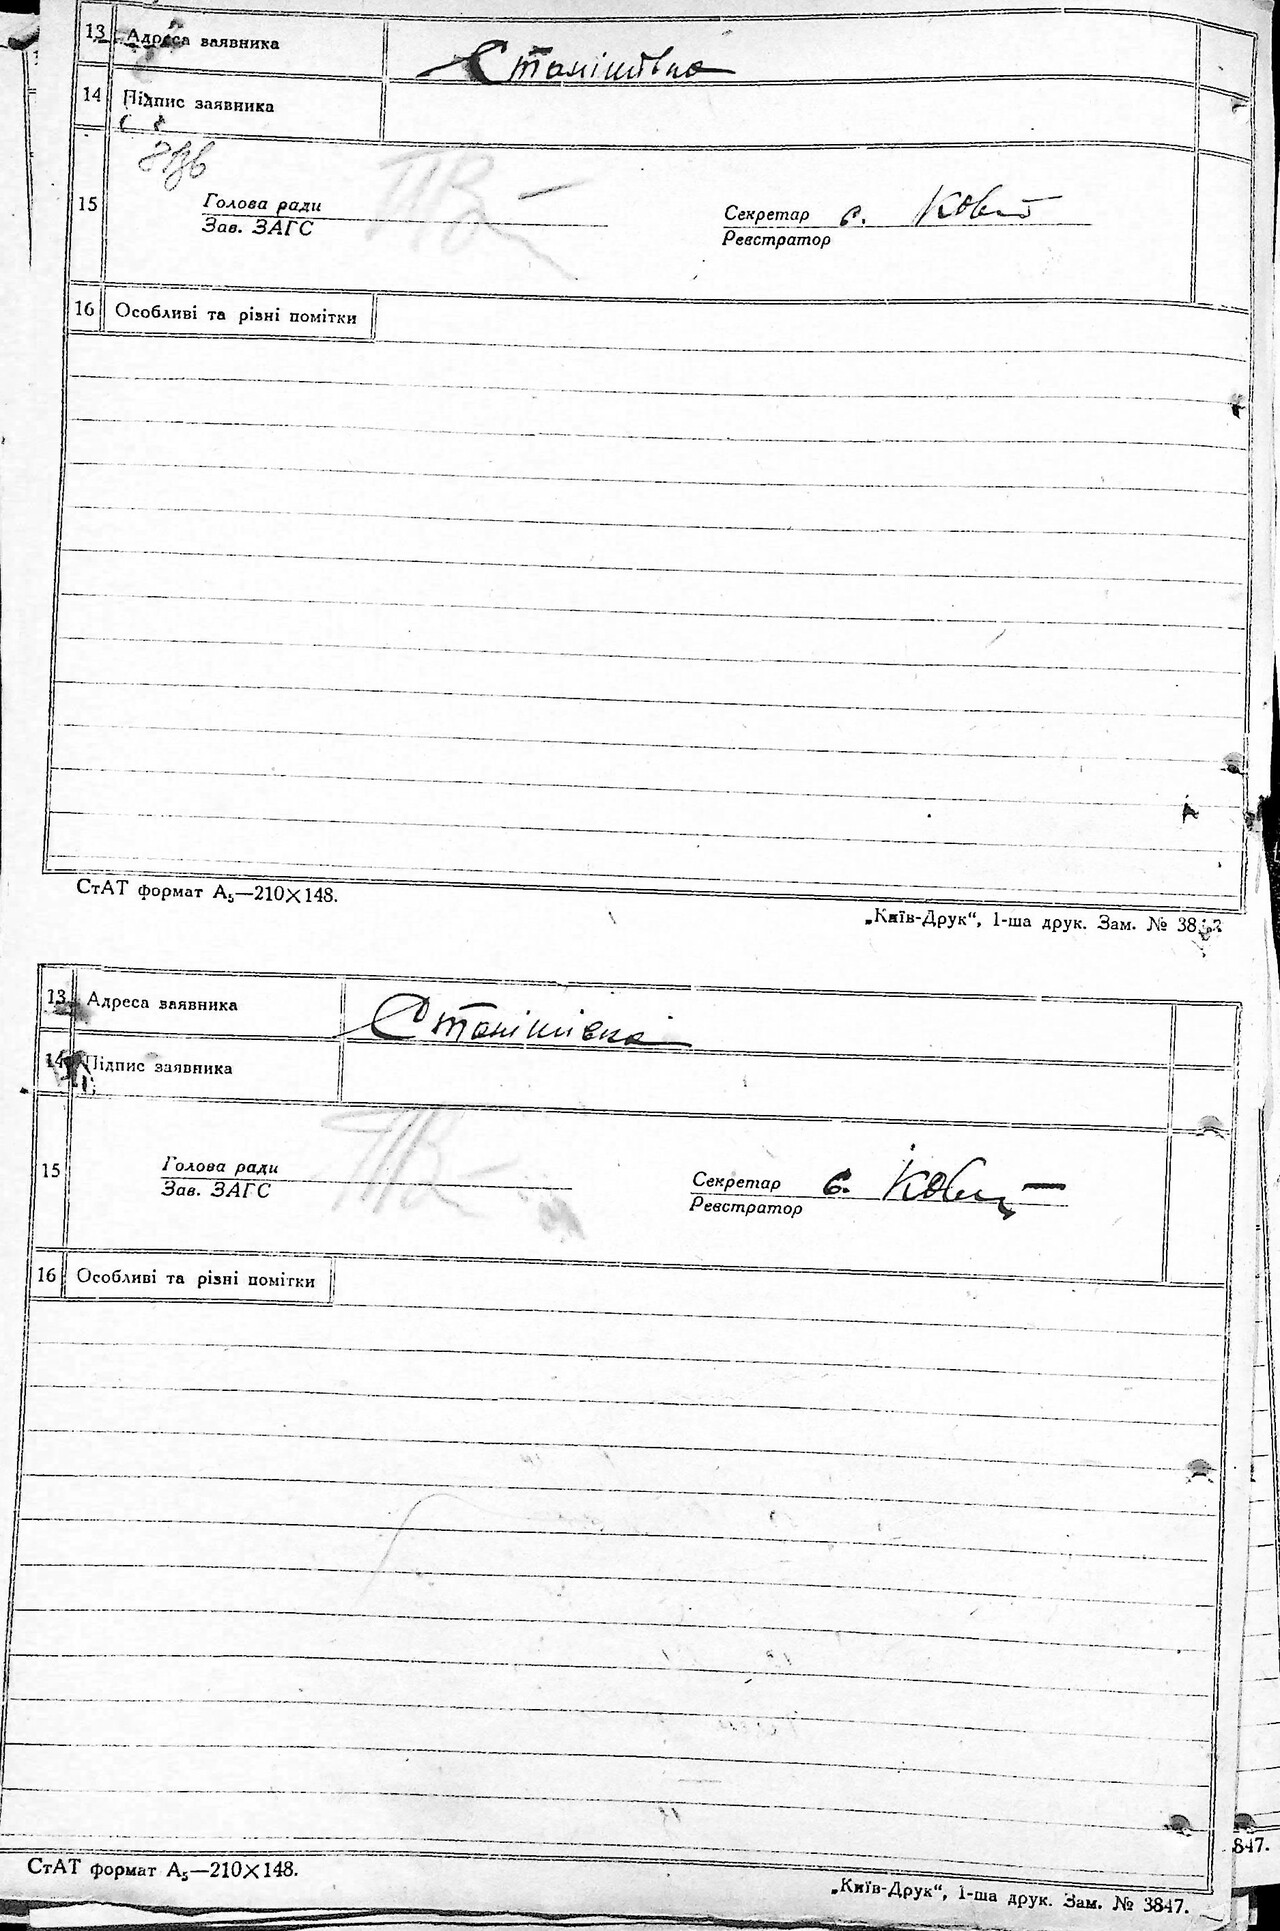 13 Адреса заявника Станішівка
14 Підпис заявника
15 Голова ради Секретар
Зав. ЗАГС Реєстратор
16 Особливі та різні помітки
СтАТ формат А₅—210×148.
„Київ-Друк“, 1-ша друк. Зам. № 3847
13 Адреса заявника Станішівка
14 Підпис заявника
15 Голова ради Секретар
Зав. ЗАГС Реєстратор
16 Особливі та різні помітки
847.
СтАТ формат А₅—210×148.
„Київ-Друк“, 1-ша друк. Зам. № 3847.